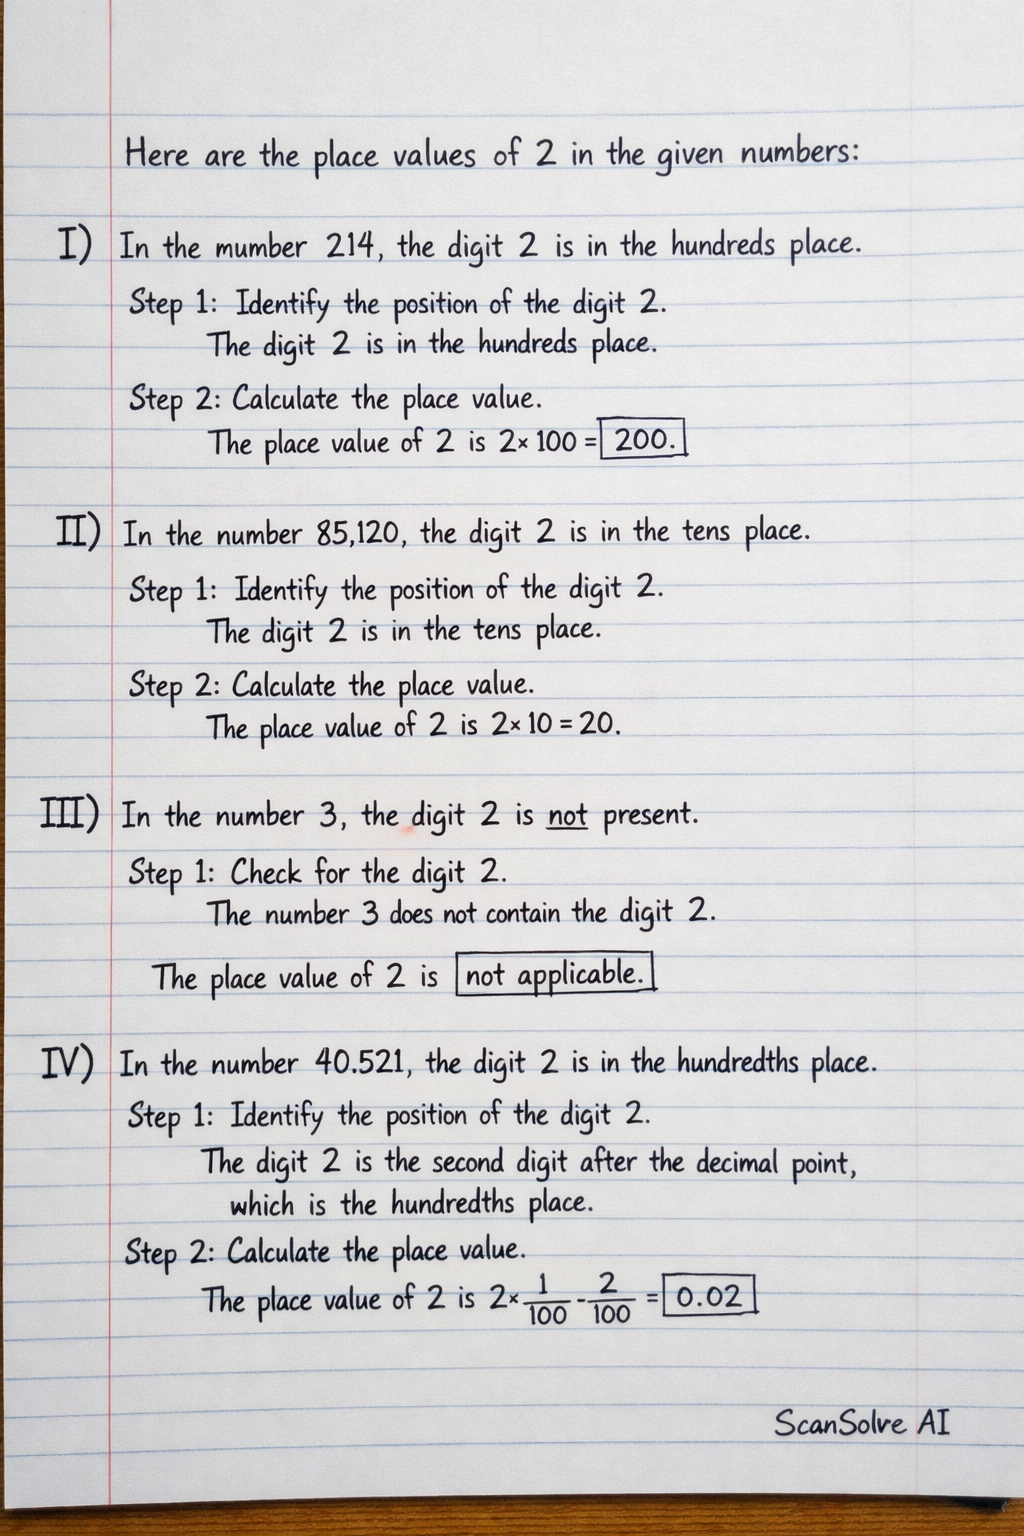 Here are the place values of 2 in the given numbers:
I) In the mumber 214, the digit 2 is in the hundreds place.
Step 1: Identify the position of the digit 2.
The digit 2 is in the hundreds place.
Step 2: Calculate the place value.
The place value of 2 is 2× 100 = 200.
II) In the number 85,120, the digit 2 is in the tens place.
Step 1: Identify the position of the digit 2.
The digit 2 is in the tens place.
Step 2: Calculate the place value.
The place value of 2 is 2× 10 = 20.
III) In the number 3, the digit 2 is not present.
Step 1: Check for the digit 2.
The number 3 does not contain the digit 2.
The place value of 2 is not applicable.
IV) In the number 40.521, the digit 2 is in the hundredths place.
Step 1: Identify the position of the digit 2.
The digit 2 is the second digit after the decimal point,
which is the hundredths place.
Step 2: Calculate the place value.
The place value of 2 is 2× 1/100 - 2/100 = 0.02
ScanSolve AI